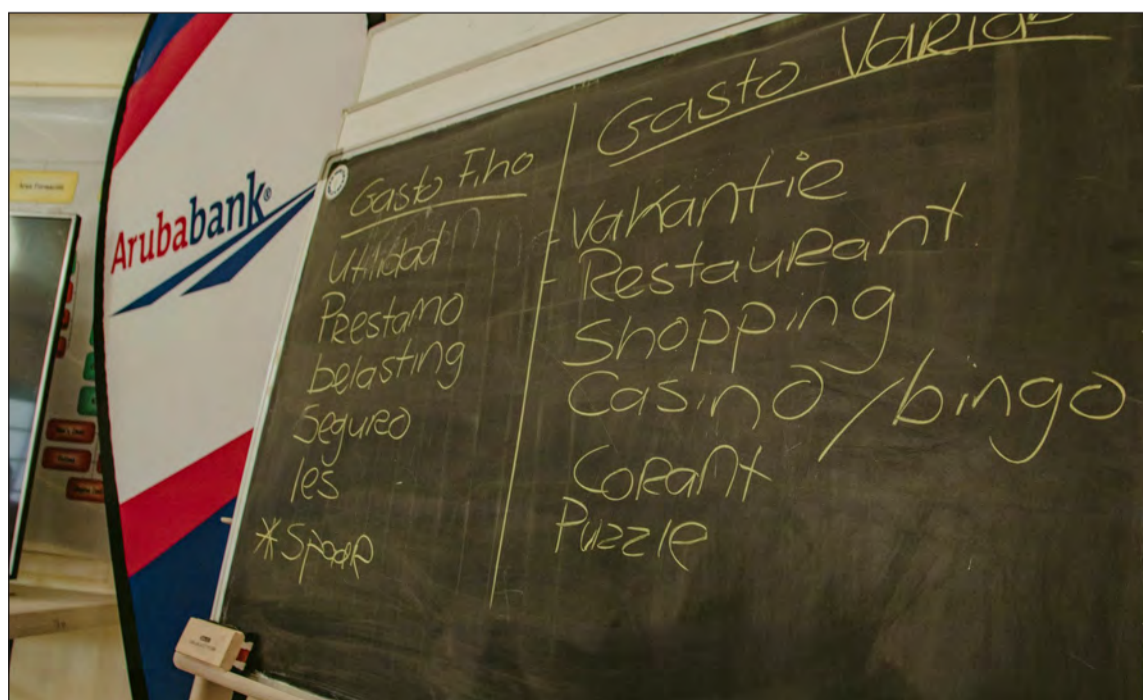 Arubabank®
Gasto Fiho
Utilidad
Prestamo
belasting
Seguro
les
*Spaar
Gasto Varia
- Vakantie
- Restaurant
Shopping
Casino/bingo
Corant
Puzzle